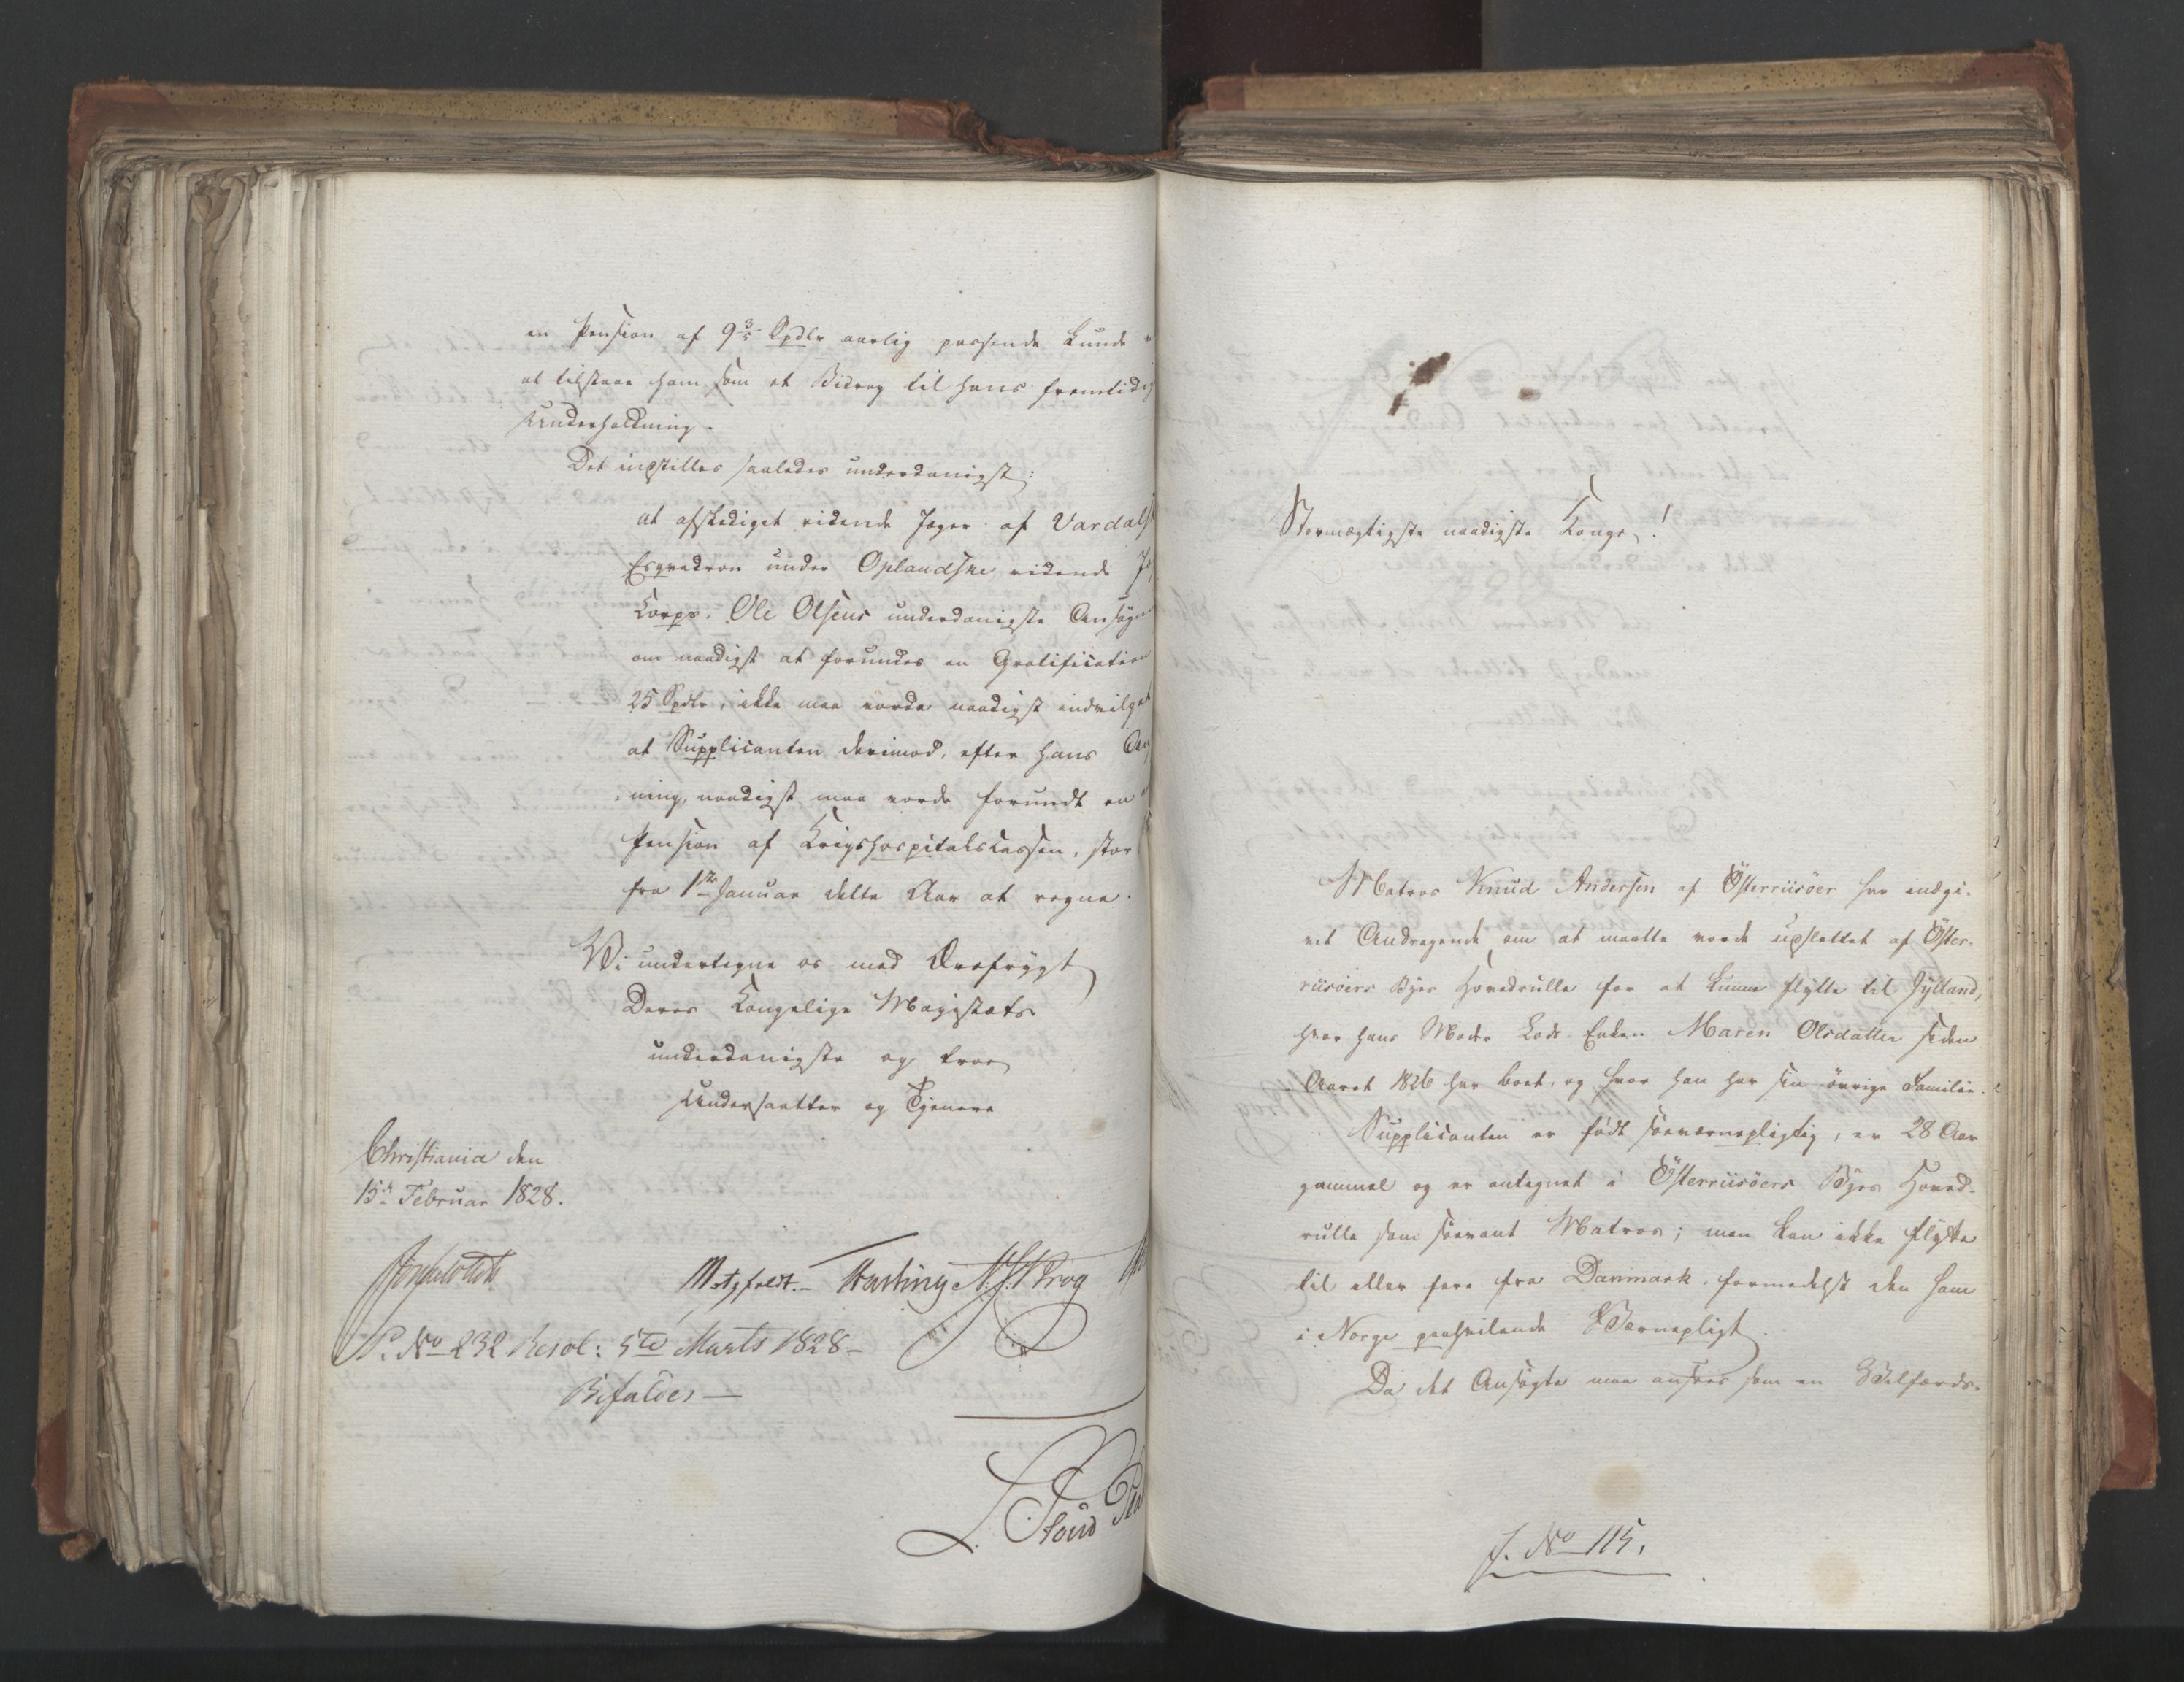 en Pension af 9 3/5 Spdlr aarlig passende kunde
at tilstaae ham som et Bidrag til hans fremtidig
Underholdning.
Det indstilles saaledes underdanigst:
at afskediget ridende Jæger af Vardalsk
Esqvadron under Oplandske ridende Jæ
Corps. Ole Olsens underdanigste Ansøgn
om naadigst at forundes en Gratification
25 Spdlr, ikke maa vorde naadigst indvilget
at Supplicanten derimod, efter hans An
ning, naadigst maa vorde forundt en
Pension af Krigshospitalskassen, stor
fra 1ste Januar dette Aar at regne.
Vi undertegne os med Ærefrygt
Deres Kongelige Majestæts
underdanigste og troe
Undersaatter og Tjenere
Christiania den
15de Februar 1828.
Motzfeldt. Krog
P. No 232 Resol: 5te Marts 1828 –
Bifaldes –
Stormægtigste naadigste Konge!
Matros Knud Andersen af Østerriisöer har indgi-
vet Andragende om at maatte vorde udslettet af Öster-
riisöers Byes Hovedrulle for at kunne flytte til Jylland,
hvor hans Moder Lods-Enken Maren Olsdatter siden
Aaret 1826 har boet, og hvor han har sin övrige Familie.
Supplicanten er født söeværnepligtig, er 28 Aar
gammel og er antegnet i Østerriisöers Byes Hoved-
rulle som söevant Matros; men kan ikke flytte
til eller fare fra Danmark, formedelst den ham
i Norge paahvilende Værnepligt.
Da det Ansøgte maa ansees som en Velfærds-
J. No 115.